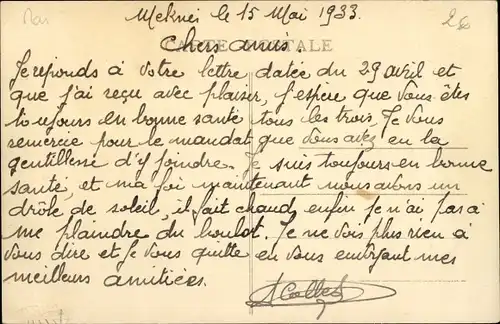 Meknès le 15 Mai 1933.
28
CARTE POSTALE
Chers amis.
Je réponds à votre lettre datée du 29 avril et
que j'ai reçu avec plaisir, j'espère que vous êtes
toujours en bonne santé tous les trois, Je vous
remercie pour le mandat que vous avez eu la
gentillesse d'y joindre. Je suis toujours en bonne
santé, et ma foi maintenant nous avons un
drôle de soleil, il fait chaud, enfin je n'ai pas à
me plaindre du boulot. Je ne vois plus rien à
vous dire et je vous quitte en vous embrassant mes
meilleurs amitiées.